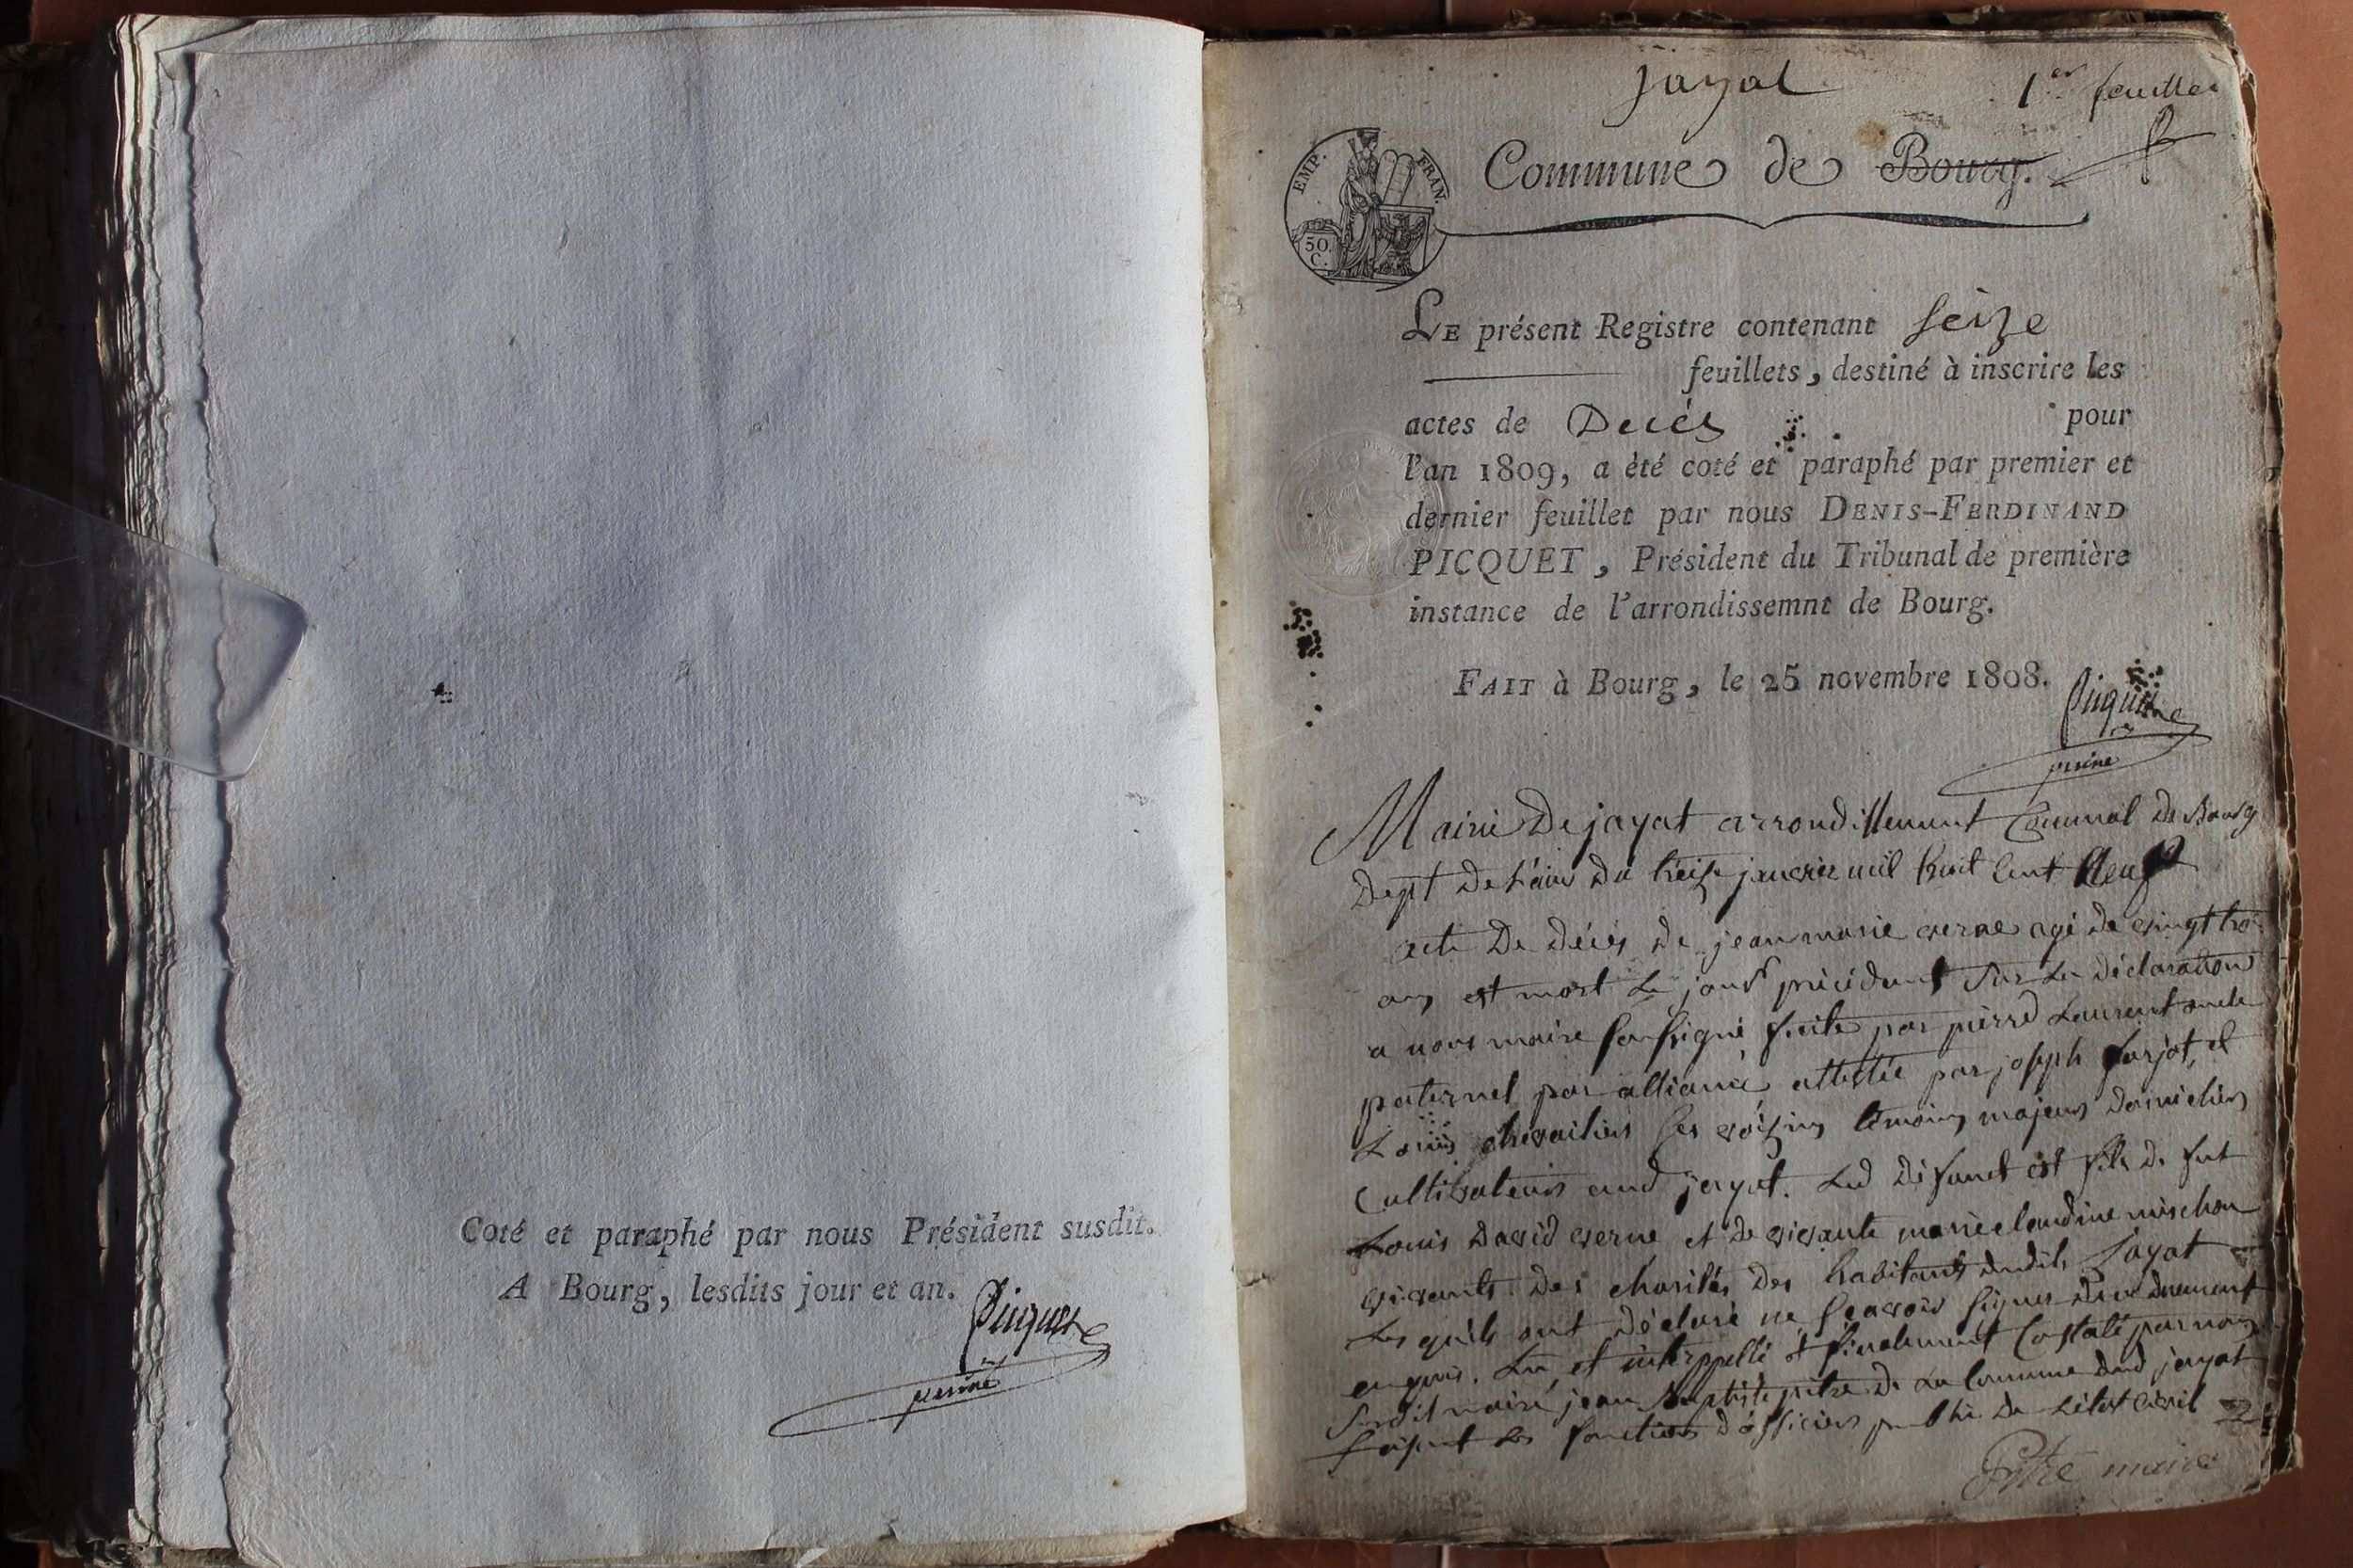 Coté et paraphé par nous Président susdit.
A Bourg, lesdits jour et an.
Picquet
jayat
1er feuillet
EMP. FRAN.
50. C.
Commune de Bourg.
LE présent Registre contenant seize
feuillets, destiné à inscrire les
actes de Decés pour
l'an 1809, a été coté et paraphé par premier et
dernier feuillet par nous DENIS-FERDINAND
PICQUET, Président du Tribunal de première
instance de l'arrondissemnt de Bourg.
FAIT à Bourg, le 25 novembre 1808.
Picquet
Mairie De jayat arrondissement Communal De Bourg
Dept De L'ain Du treize janvier mil huit Cent Neuf
acte De décès de jean marie verne agé de vingt trois
ans est mort Le jour précédent sur La déclaration
a nous maire soussigné faite par pierre Laurent oncle
paternel par alliance, attestée par joseph farjot, et
Louis chevailier ses voisins témoins majeurs Domiciliers
Cultivateurs aud jayat. Led Défunct est fils de fut
Louis David verne et de vivante marie claudine mischon
vivants des charités Des habitants dudit Jayat
Lesquels ont déclaré ne scavoir signer De ce duement
enquis. Lu, et interppellé et finalement Constaté par nous
susdit maire jean Baptiste pitre de La Commune dud jayat
faisant les fonctions d'officiers public De L'état Civil
Pitre maire